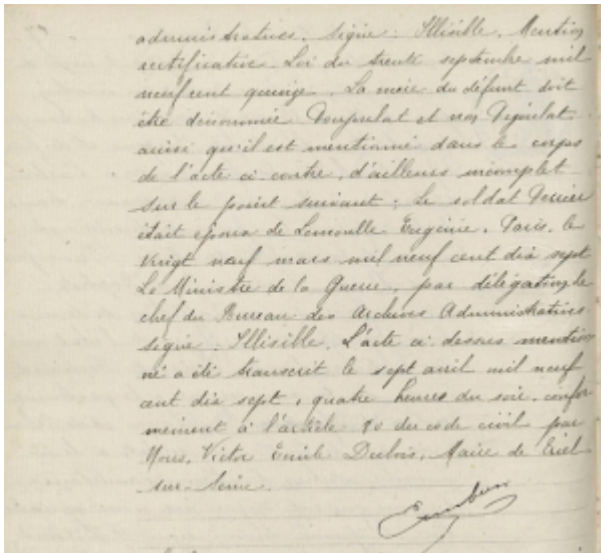 administratives. Signé : Illisible. Mention
rectificative. Loi du trente septembre mil
neuf cent quinze. La mère du défunt doit
être dénommée et non
ainsi qu'il est mentionné dans le corps
de l'acte ci contre, d'ailleurs incomplet
sur le point suivant : Le soldat
était époux de Eugénie. Paris, le
vingt neuf mars mil neuf cent dix sept
Le Ministre de la Guerre, par délégation le
chef du Bureau des Archives Administratives
signé : Illisible. L'acte ci dessus mention
né a été transcrit le sept avril mil neuf
cent dix sept, quatre heures du soir, confor
mément à l'article du code civil par
Nous, Victor Emile Dubois, Maire de Triel
sur-Seine.